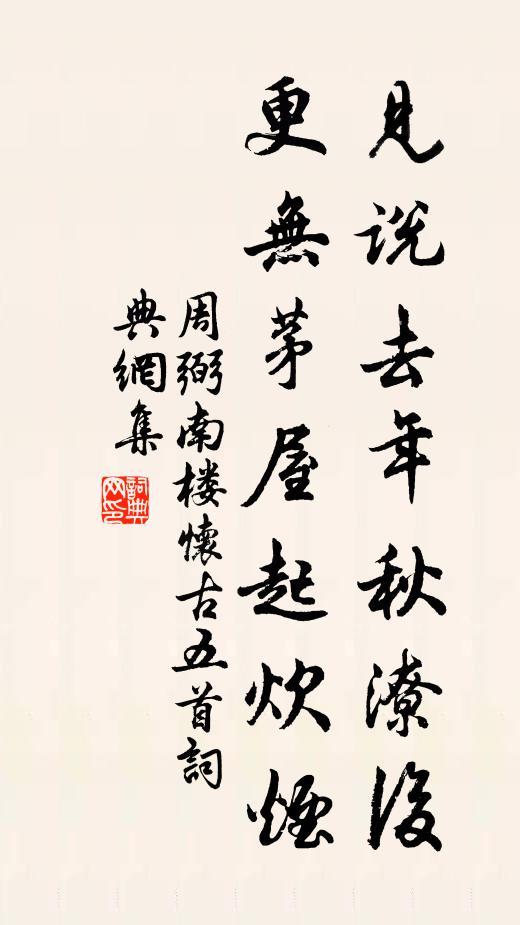 見説去年秋潦後
更無茅屋起炊煙
周弼南楼懷古五首詞
典網集
詞典
网印